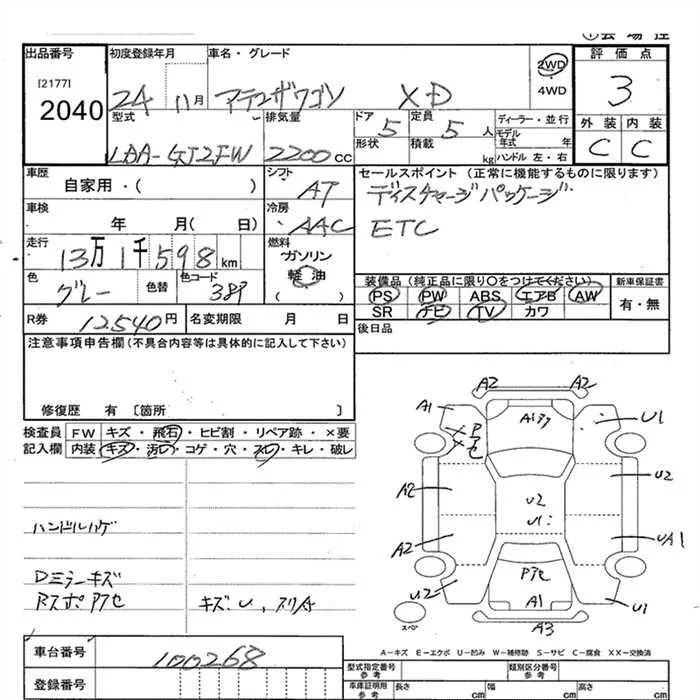 出品番号
[2177]
2040
初度登録年月
24 11月
車名・グレード
アテンザワゴン XD
2WD
4WD
評価点
3
外装 内装
C C
型式
LDA-GJ2FW
排気量
2200cc
ドア
5
形状
定員
5人
積載
kg
ディーラー・並行
モデル
年式 年
ハンドル 左・右
車歴
自家用・( )
シフト
AT
セールスポイント (正常に機能するものに限ります)
ディスチャージパッケージ
ETC
車検
年 月( 日)
冷房
AAC
走行
13万1千598km
燃料
ガソリン
軽油
( )
色
グレー
色替
色コード
装備品 (純正品に限り○をつけてください)
PS PW ABS エアB AW
SR ナビ TV カワ
新車保証書
有・無
R券
12540円
名変期限 月 日
後日品
注意事項申告欄(不具合内容等は具体的に記入して下さい)
修復歴 有 〔箇所 〕
検査員
記入欄
FW キズ・飛石・ヒビ割・リペア跡・×要
内装 キズ・汚レ・コゲ・穴・スレ・キレ・破レ
ハンドルハゲ
Dミラーキズ
キズ、U、スリキ
A2 A2
A1
U1
A2
U2
U2
U1
A2
UA1
U2
A1
U1
A3
スペア
A-キズ E-エクボ U-凹み W-補修跡 S-サビ C-腐食 XX-交換済
車台番号
100268
登録番号
型式指定番号
参考
類別区分番号
参考
車庫証明用
参考
長さ cm
幅 cm
高さ cm